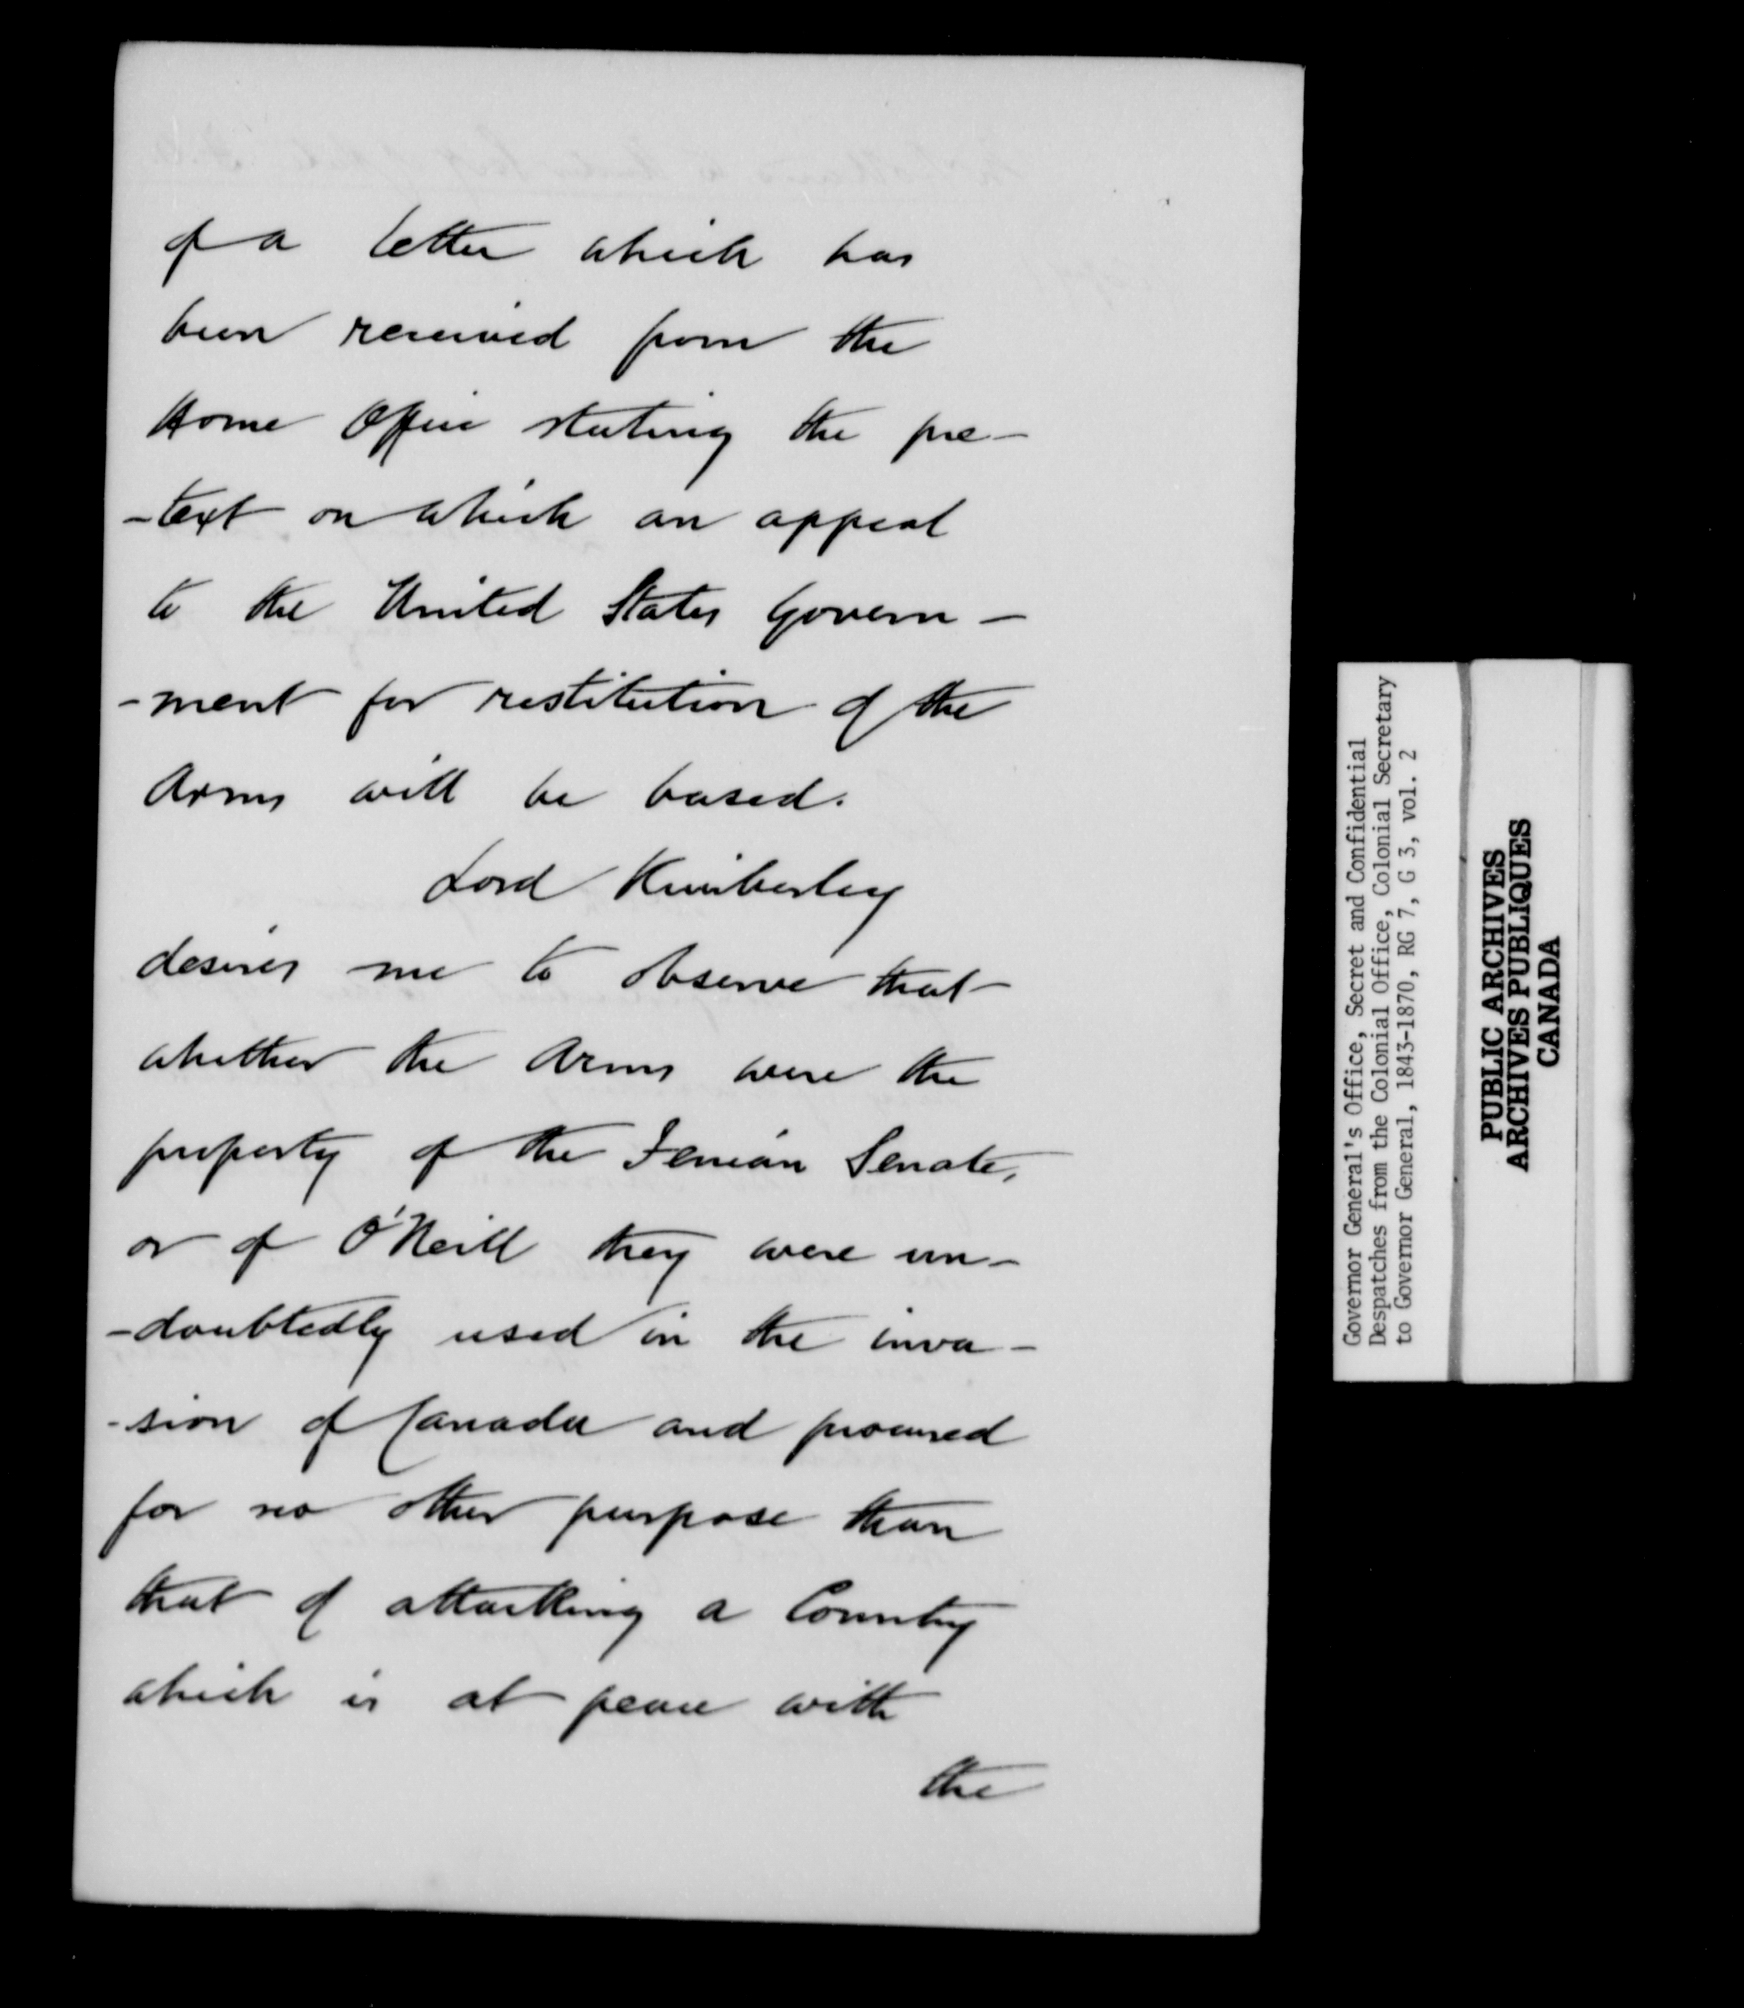 of a letter which has
been received from the
Home Office stating the pre-
-text on which an appeal
to the United States Govern-
-ment for restitution of the
Arms will be based.
Lord Kimberley
desires me to observe that
whether the Arms were the
property of the Fenian Senate,
or of O'Neill they were un-
-doubtedly used in the inva-
-sion of Canada and procured
for no other purpose than
that of attacking a Country
which is at peace with
the
Governor General's Office, Secret and Confidential
Despatches from the Colonial Office, Colonial Secretary
to Governor General, 1843-1870, RG 7, G 3, vol. 2
PUBLIC ARCHIVES
ARCHIVES PUBLIQUES
CANADA